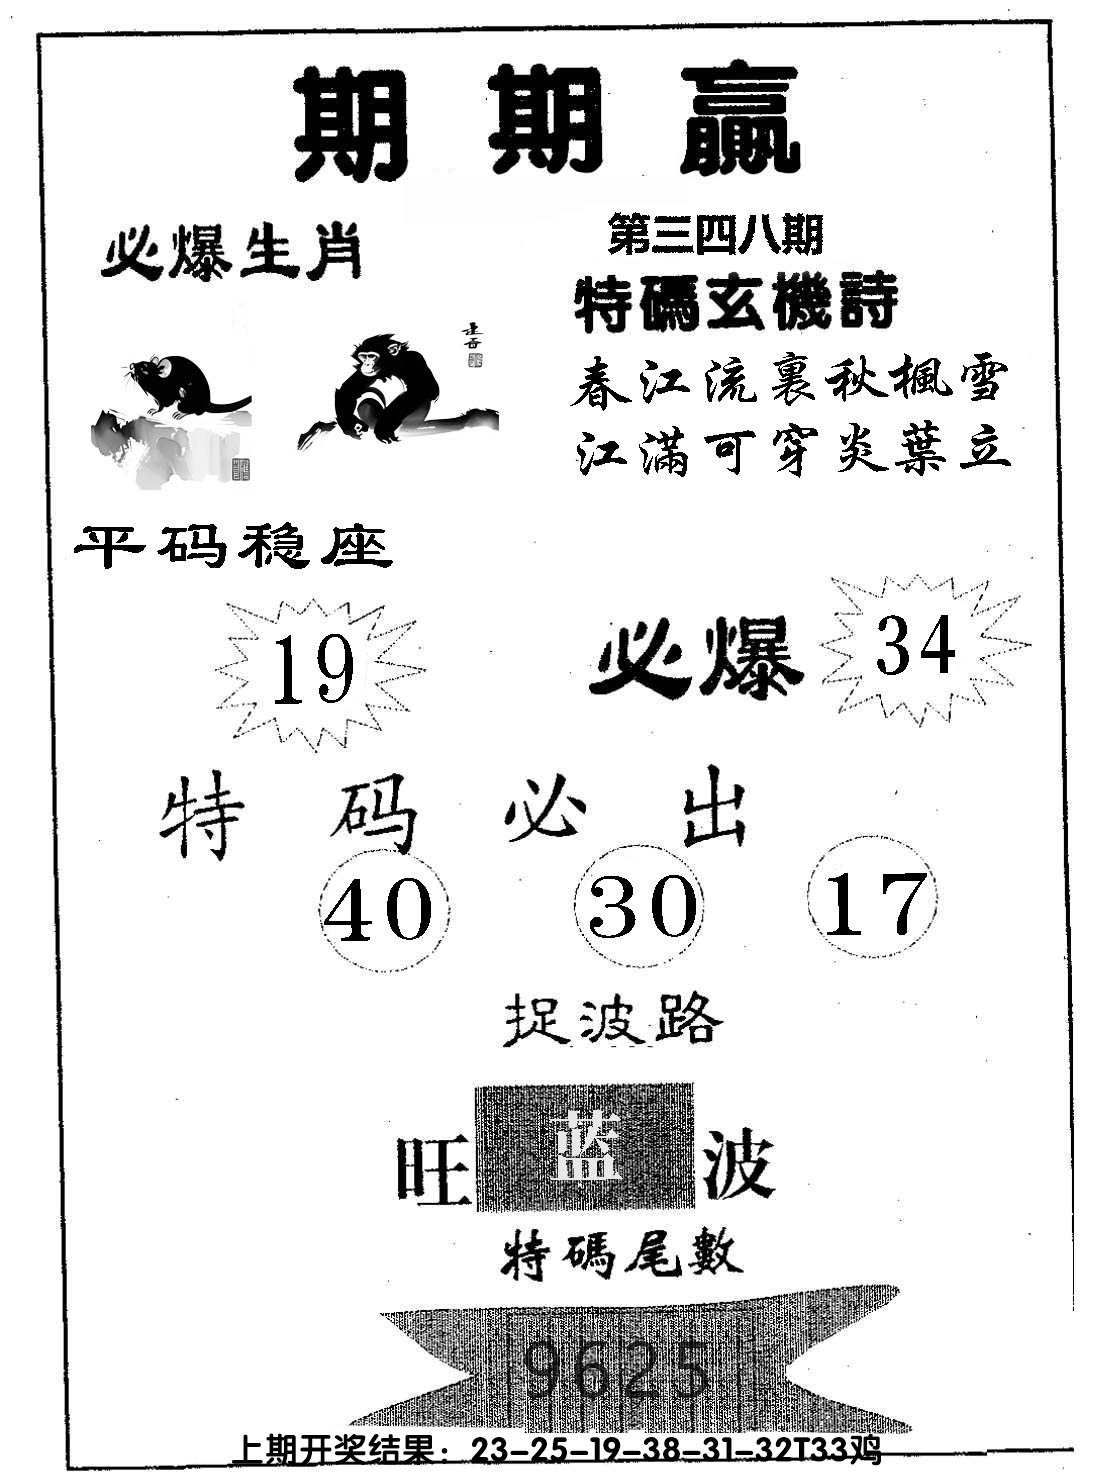 期期赢
必爆生肖
第三四八期
特碼玄機詩
春江流裏秋楓雪
江滿可穿炎葉立
平码稳座
19
必爆 34
特码必出
40 30 17
捉波路
旺 蓝 波
特碼尾數
9625
上期开奖结果：23-25-19-38-31-32T33鸡